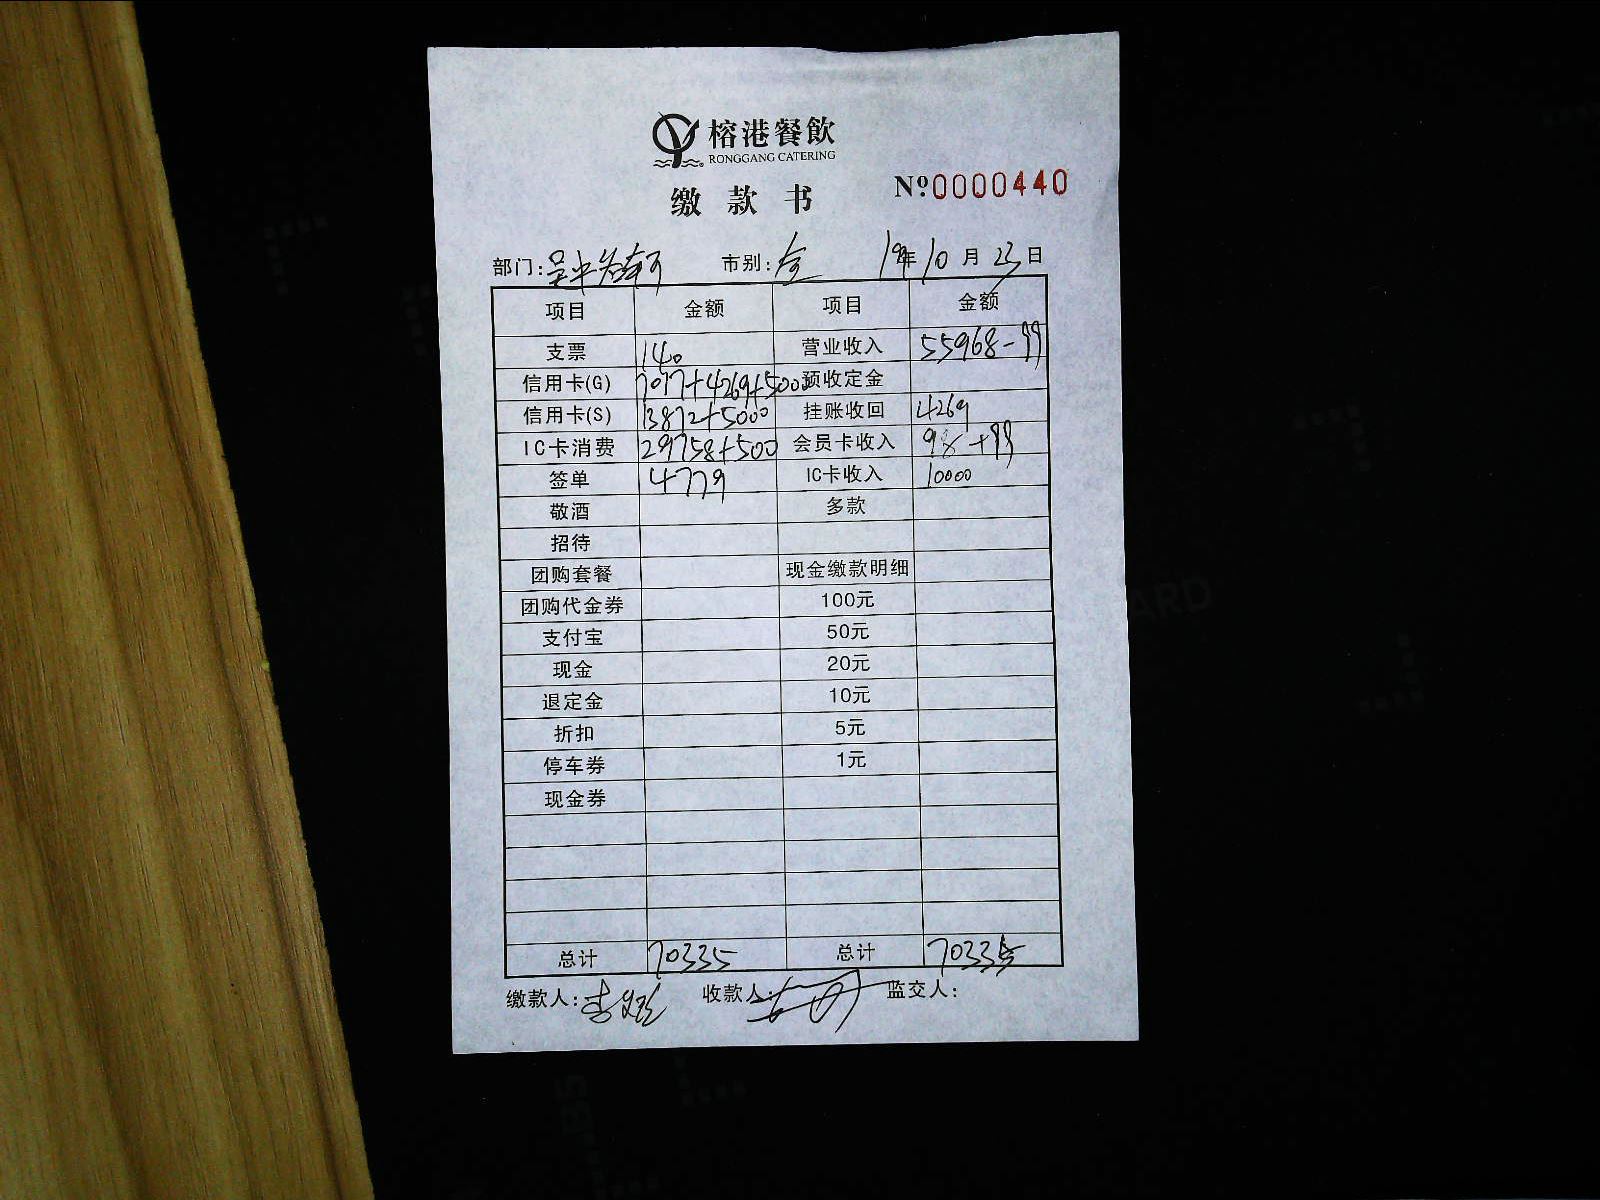 榕港餐飲
RONGGANG CATERING
缴款书 Nº0000440
部门: 市别:全 19年10月23日
项目 金额 项目 金额
支票 140 营业收入 55968-99
信用卡(G) 7017+4269+5000 预收定金
信用卡(S) 13872+5000 挂账收回 4269
IC卡消费 29758+500 会员卡收入 98+99
签单 4779 IC卡收入 10000
敬酒 多款
招待
团购套餐 现金缴款明细
团购代金券 100元
支付宝 50元
现金 20元
退定金 10元
折扣 5元
停车券 1元
现金券
总计 70335 总计 70335
缴款人: 收款人: 监交人: